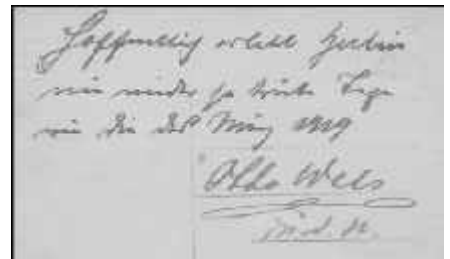 Hoffentlich erlebt Berlin
nie wieder so trübe Tage
wie die des März 1919
Otto Wels